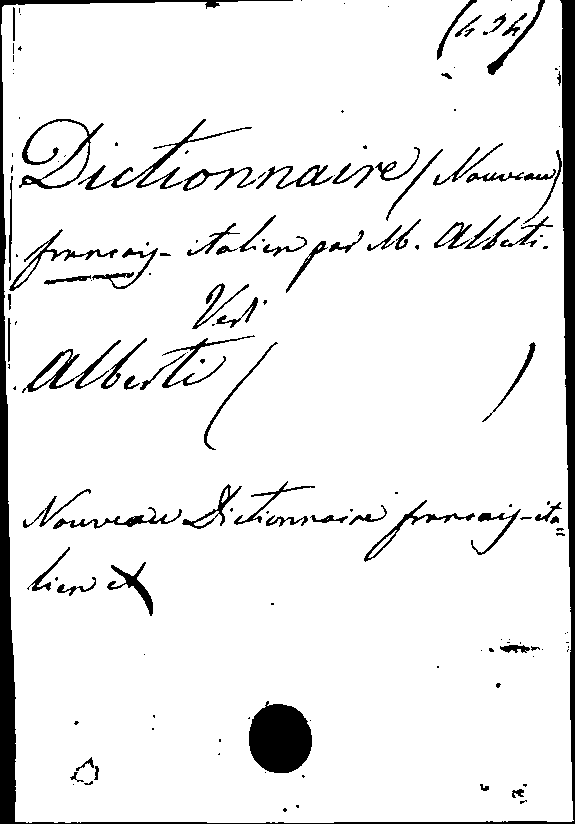 (434)
Dictionnaire (Nouveau)
français-italien par M. Alberti.
Vedi
Alberti ( )
Nouveau Dictionnaire français-ita=
lien et